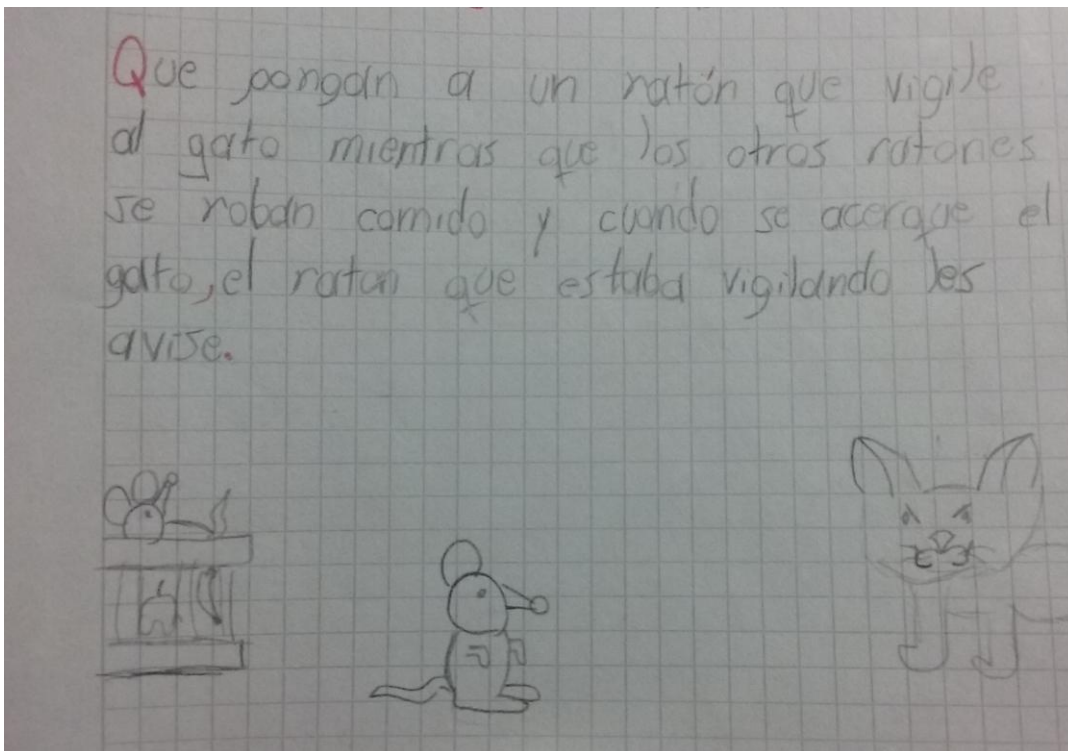 Que pongan a un ratón que vigile
al gato mientras que los otros ratones
se roban comida y cuando se acerque el
gato, el raton que estaba vigilando les
avise.